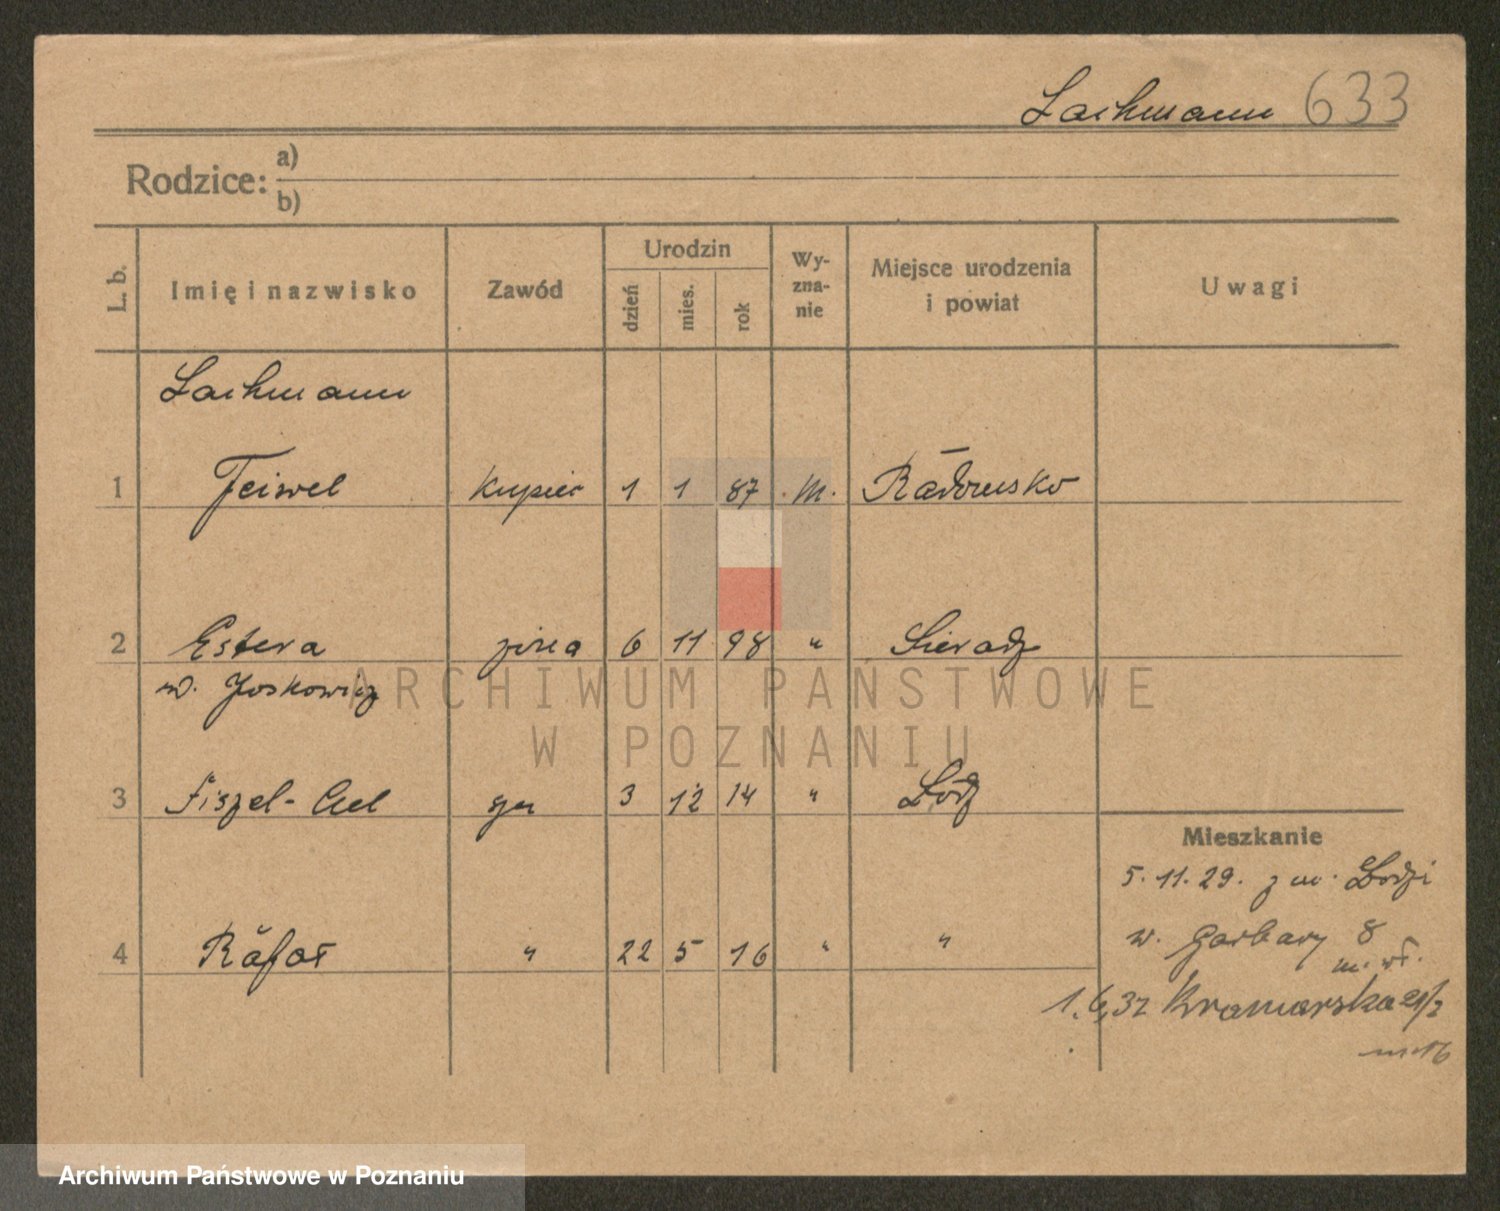 Lachmann 633
Rodzice: a)
b)
L. b. Imię i nazwisko Zawód Urodzin dzień mies. rok Wy-zna-nie Miejsce urodzenia i powiat Uwagi
Lachmann
1 Feiwel kupiec 1 1 87 m. Radomsko
2 Estera żona 6 11 98 " Sieradz
w. Joskowicz
3 Fiszel- syn 3 12 14 " Łódź
4 Rafał " 22 5 16 " "
Mieszkanie
5. 11. 29. z m. Łodzi
w. Garbary 8
m. wł.
1. 6, 32 Kramarska 21/2
m 16
ARCHIWUM PAŃSTWOWE
W POZNANIU
Archiwum Państwowe w Poznaniu